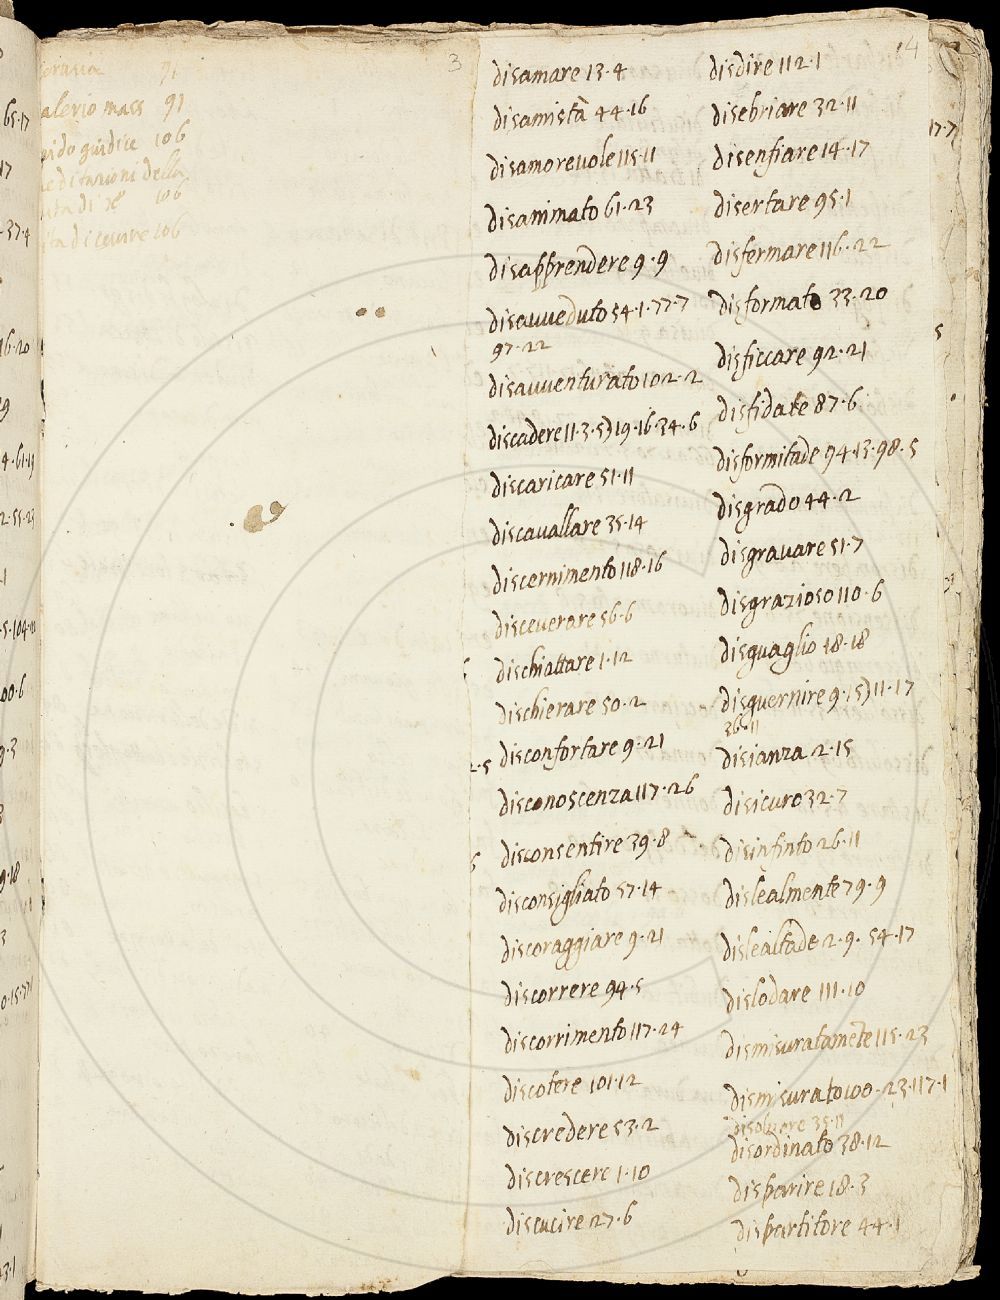 3
91
alerio mass 91
guidice 106
della
106
106
disamare 13·4
disamistà 44·16
disamorevole 115·11
disaminato 61·23
disapprendere 9·9
disavveduto 54·1·77·7
97·22
disavventurato 102·2
discadere 11·3·5) 19·16·34·6
discaricare 51·11
discavallare 35·14
discernimento 118·16
disceverare 56·6
dischiattare 1·12
dischierare 50·2
disconfortare 9·21
disconoscenza 117·26
disconsentire 39·8
disconsigliato 57·14
discoraggiare 9·21
discorrere 94·5
discorrimento 117·24
discotere 101·12
discredere 53·2
discrescere 1·10
discucire 27·6
4
disdire 112·1
disebriare 32·11
disenfiare 14·17
disertare 95·1
disfermare 116·22
disformato 33·20
disficcare 92·21
disfidate 87·6
disformitade 94·13·98·5
disgrado 44·2
disgravare 51·7
disgrazioso 110·6
disguaglio 48·18
disguernire 9·15) 11·17
36·11
disianza 2·15
disicuro 32·7
disinfinto 26·11
dislealmente 79·9
dislealtade 2·9· 54·17
dislodare 111·10
dismisuratamēte 115·23
dismisurato 100·23·117·1
disolvere 35·11
disordinato 38·12
disparire 18·3
dispartitore 44·1